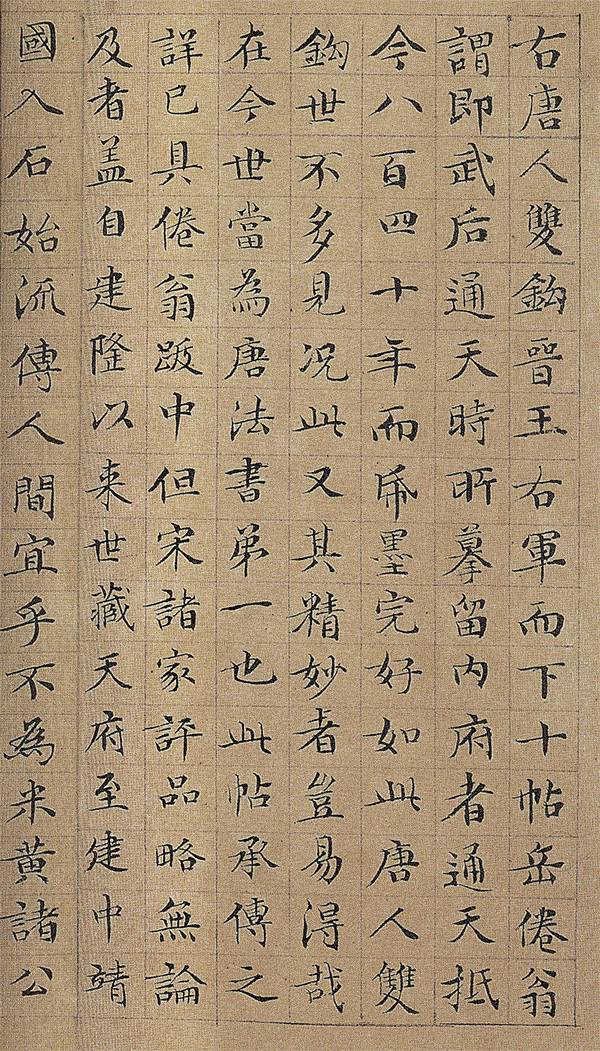 右唐人雙鈎晉王右軍而下十帖岳倦翁
謂即武后通天時所摹留内府者通天抵
今八百四十年而紙墨完好如此唐人雙
鈎世不多見况此又其精妙者豈易得哉
在今世當為唐法書弟一也此帖承傳之
詳已具倦翁跋中但宋諸家評品略無論
及者盖自建隆以来世藏天府至建中靖
國入石始流傳人間宜乎不為米黄諸公